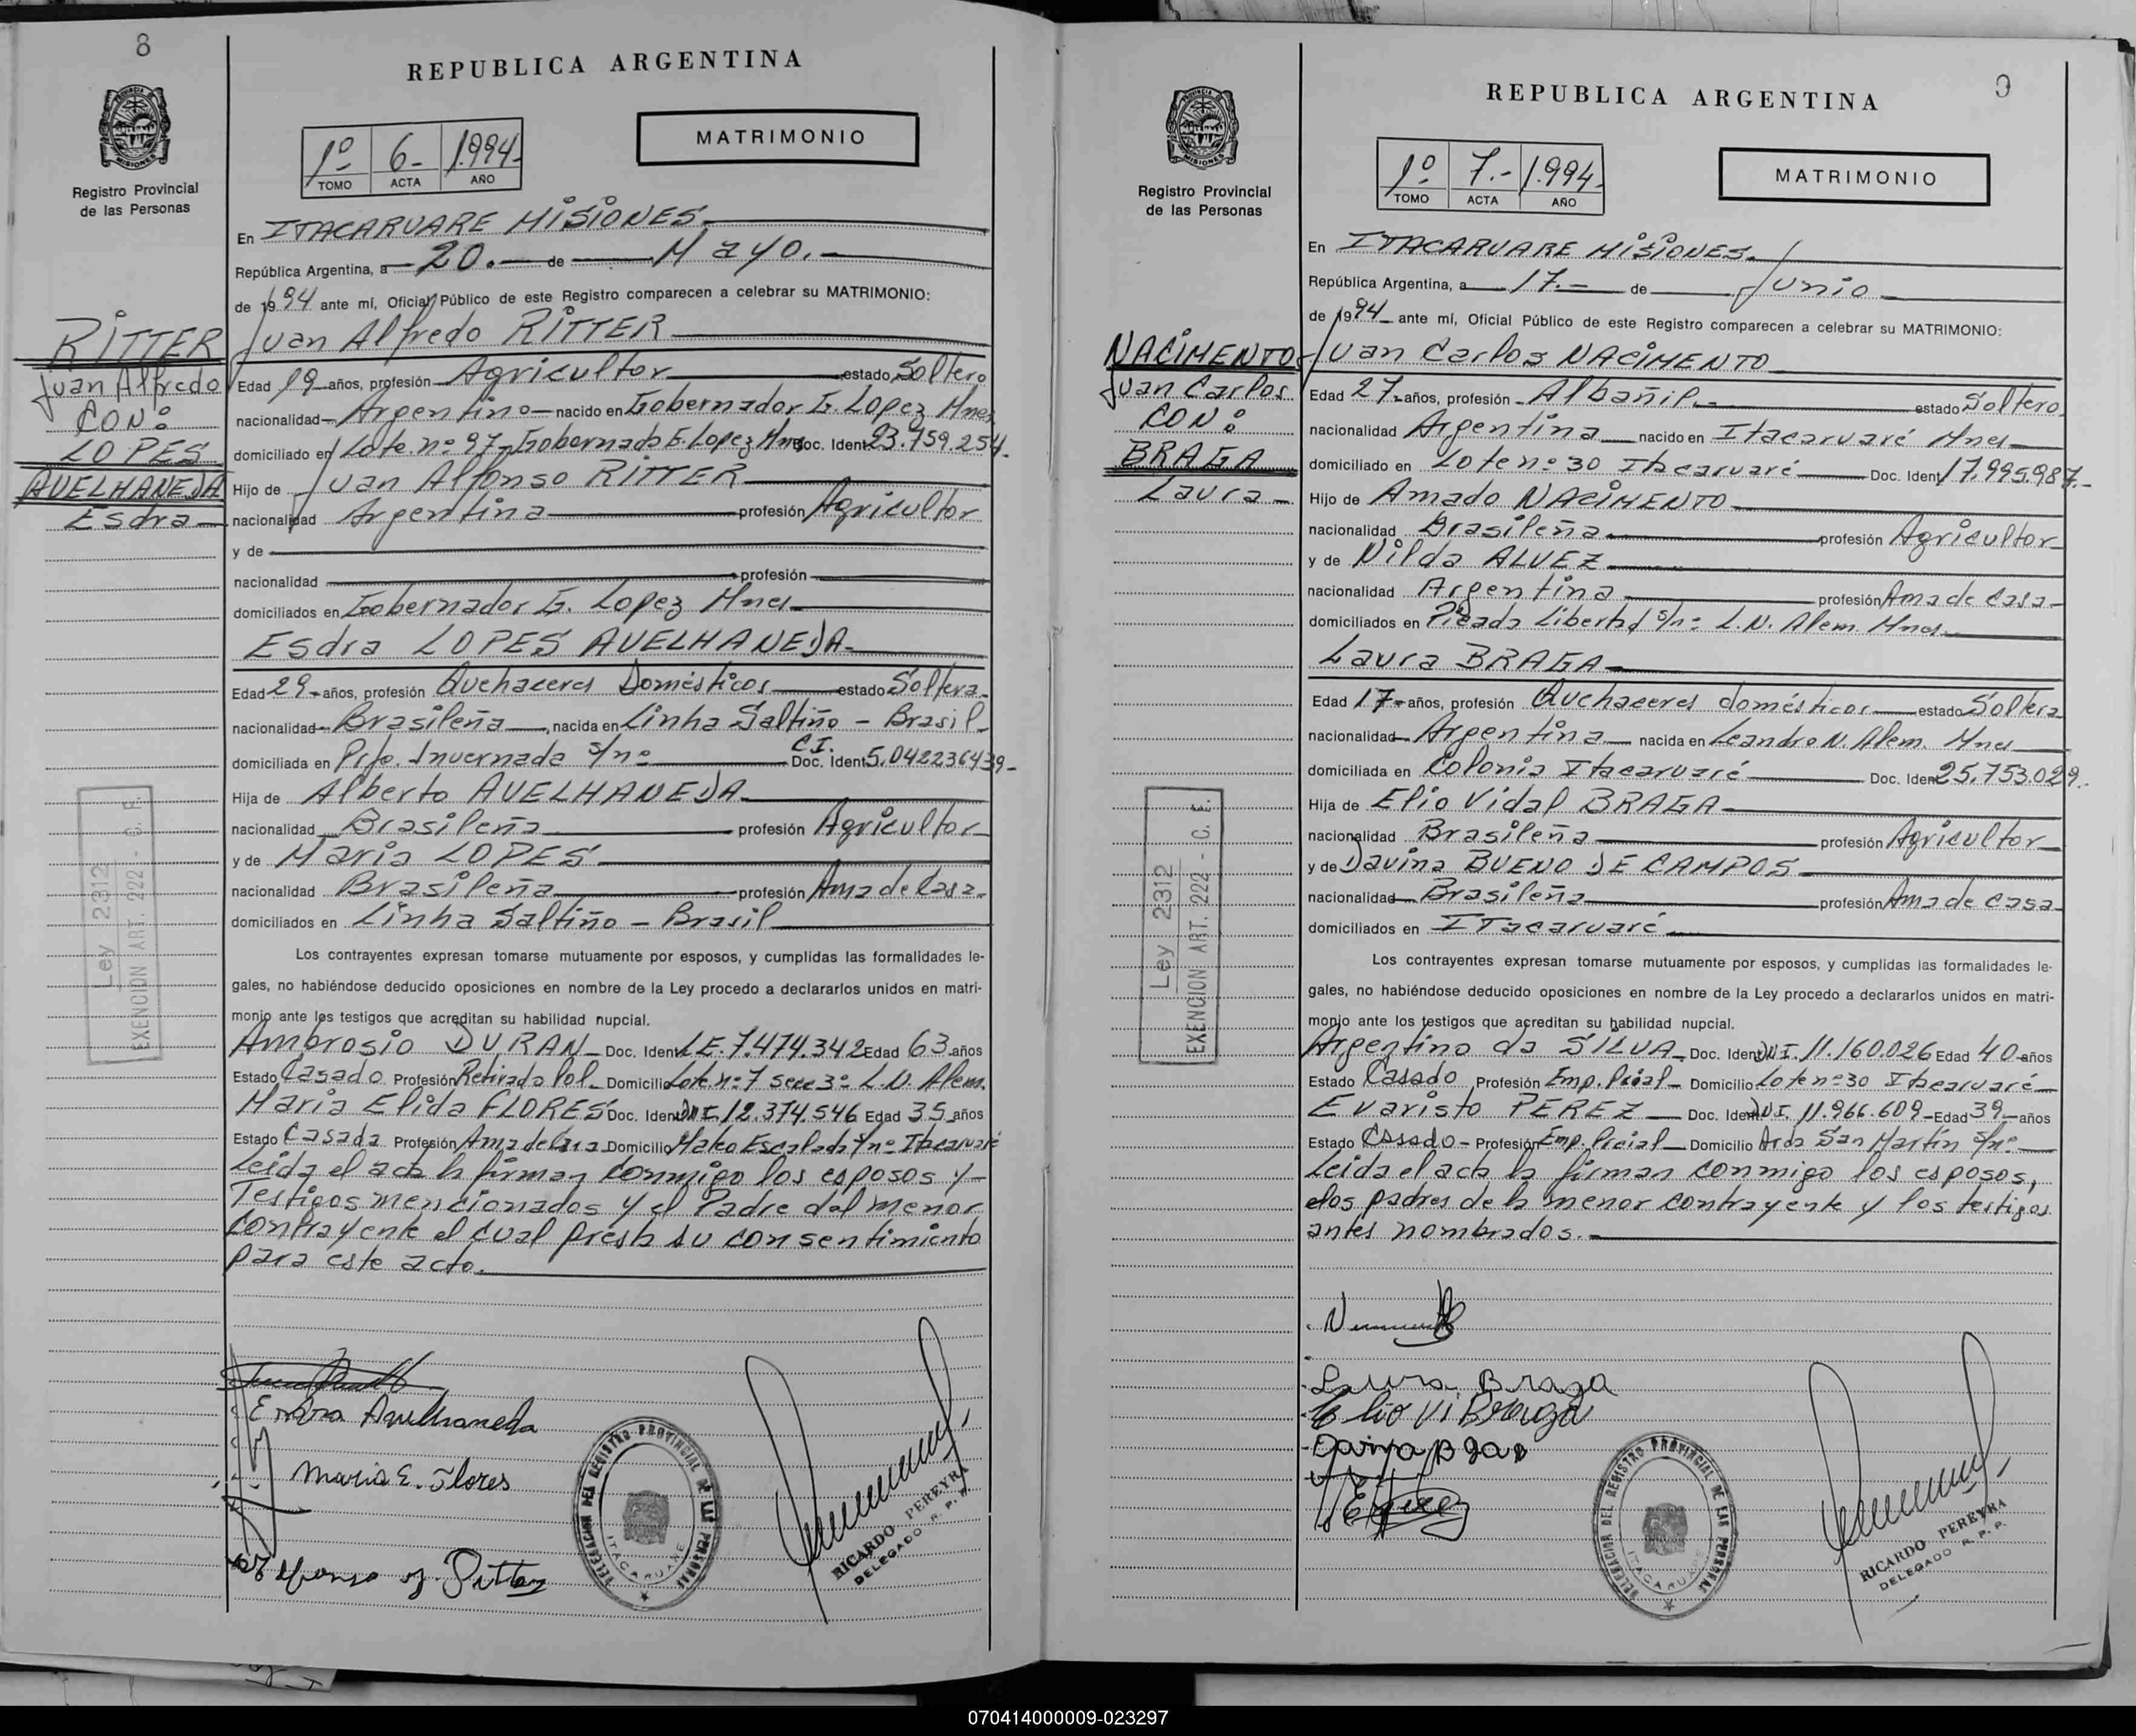 8
REPUBLICA ARGENTINA
PROVINCIA DE
MISIONES
MATRIMONIO
1º 6- 1.994-
TOMO ACTA AÑO
Registro Provincial
de las Personas
En ITACARUARE MISIONES.
República Argentina, a 20. de Mayo.-
de 1994 ante mí, Oficial Público de este Registro comparecen a celebrar su MATRIMONIO:
RITTER
Juan Alfredo
CON:
LOPES
AVELHANEDA
Esdra
Juan Alfredo RITTER
Edad 19 años, profesión Agricultor estado Soltero
nacionalidad Argentino nacido en Gobernador G. Lopez Mnes
domiciliado en Lote nº 97- Gobernado G. Lopez Mnes Doc. Ident 23.759.254.
Hijo de Juan Alfonso RITTER
nacionalidad Argentina profesión Agricultor
y de
nacionalidad profesión
domiciliados en Gobernador G. Lopez Mnes
Esdra LOPES AVELHANEDA
Edad 29 años, profesión Quehaceres Domésticos estado Soltera
nacionalidad Brasileña, nacida en Linha Saltiño - Brasil
domiciliada en Pje. Invernada s/nº C.I. Doc. Ident 5.042236439-
Hija de Alberto AVELHANEDA
nacionalidad Brasileña profesión Agricultor
y de Maria LOPES
nacionalidad Brasileña profesión Ama de Casa
domiciliados en Linha Saltiño - Brasil
Los contrayentes expresan tomarse mutuamente por esposos, y cumplidas las formalidades le-
gales, no habiéndose deducido oposiciones en nombre de la Ley procedo a declararlos unidos en matri-
monio ante los testigos que acreditan su habilidad nupcial.
Ambrosio DURAN Doc. Ident L.E. 7.474.342 Edad 63 años
Estado Casado Profesión Retirado Pol. Domicilio Lote nº 7 Secc 3º L.N. Alem.
Maria Elida FLORES Doc. Ident DNI. 12.374.546 Edad 35 años
Estado Casada Profesión Ama de Casa Domicilio Mateo Escalada s/nº Itacaruaré
Leida el acta la firman conmigo los esposos y
Testigos mencionados y el Padre del menor
contrayente el cual presta su consentimiento
para este acto.
Ley 2312
EXENCION ART. 222 - C. F.
Esdra Avelhaneda
Maria E. Flores
Alfonso J. Ritter
DELEGACION DEL REGISTRO PROVINCIAL DE LAS PERSONAS
ITACARUARE
RICARDO PEREYRA
DELEGADO R. P. P.
9
REPUBLICA ARGENTINA
PROVINCIA DE
MISIONES
MATRIMONIO
1º 7.- 1.994.
TOMO ACTA AÑO
Registro Provincial
de las Personas
En ITACARUARE MISIONES.
República Argentina, a 17.- de Junio
de 1994 ante mí, Oficial Público de este Registro comparecen a celebrar su MATRIMONIO:
NACIMENTO
Juan Carlos
CON:
BRAGA
Laura
Juan Carlos NACIMENTO
Edad 27 años, profesión Albañil.- estado Soltero
nacionalidad Argentina nacido en Itacaruaré Mnes
domiciliado en Lote nº 30 Itacaruaré Doc. Ident 17.995.987.-
Hijo de Amado NACIMENTO
nacionalidad Brasileña profesión Agricultor
y de Nilda ALVEZ
nacionalidad Argentina profesión Ama de Casa
domiciliados en Picada Libertad s/nº L.N. Alem. Mnes
Laura BRAGA
Edad 17 años, profesión Quehaceres domésticos estado Soltera
nacionalidad Argentina nacida en Leandro N. Alem. Mnes
domiciliada en Colonia Itacaruaré Doc. Ident 25.753.029.
Hija de Elio Vidal BRAGA
nacionalidad Brasileña profesión Agricultor
y de Davina BUENO DE CAMPOS
nacionalidad Brasileña profesión Ama de Casa
domiciliados en ITacaruaré
Los contrayentes expresan tomarse mutuamente por esposos, y cumplidas las formalidades le-
gales, no habiéndose deducido oposiciones en nombre de la Ley procedo a declararlos unidos en matri-
monio ante los testigos que acreditan su habilidad nupcial.
Argentino da SILVA Doc. Ident DNI. 11.160.026 Edad 40 años
Estado Casado Profesión Emp. Pcial Domicilio Lote nº 30 Itacaruaré
Evaristo PEREZ Doc. Ident DNI. 11.966.609 Edad 39 años
Estado Casado Profesión Emp. Pcial Domicilio Avda San Martín s/nº
Leida el acta la firman conmigo los esposos,
los padres de la menor contrayente y los testigos
antes nombrados.
Ley 2312
EXENCION ART. 222 - C. F.
Laura Braga
Elio Vi Braga
DELEGACION DEL REGISTRO PROVINCIAL DE LAS PERSONAS
ITACARUARE
RICARDO PEREYRA
DELEGADO R. P. P.
070414000009-023297